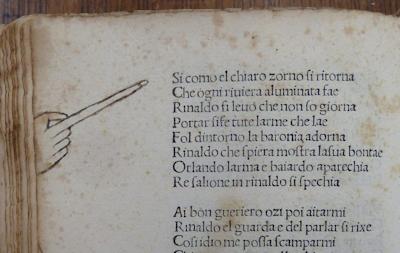 Si como el chiaro zorno si ritorna
Che ogni riuiera aluminata fae
Rinaldo si leuo che non so giorna
Portar si fe tute larme che lae
Fol dintorno la baronia adorna
Rinaldo che spiera mostra la sua bontae
Orlando larma e baiardo aparechia
Re salione in rinaldo si spechia
Ai bon gueriero ozi poi aitarmi
Rinaldo el guarda e del parlar si rixe
Cosi idio me possa scamparmi